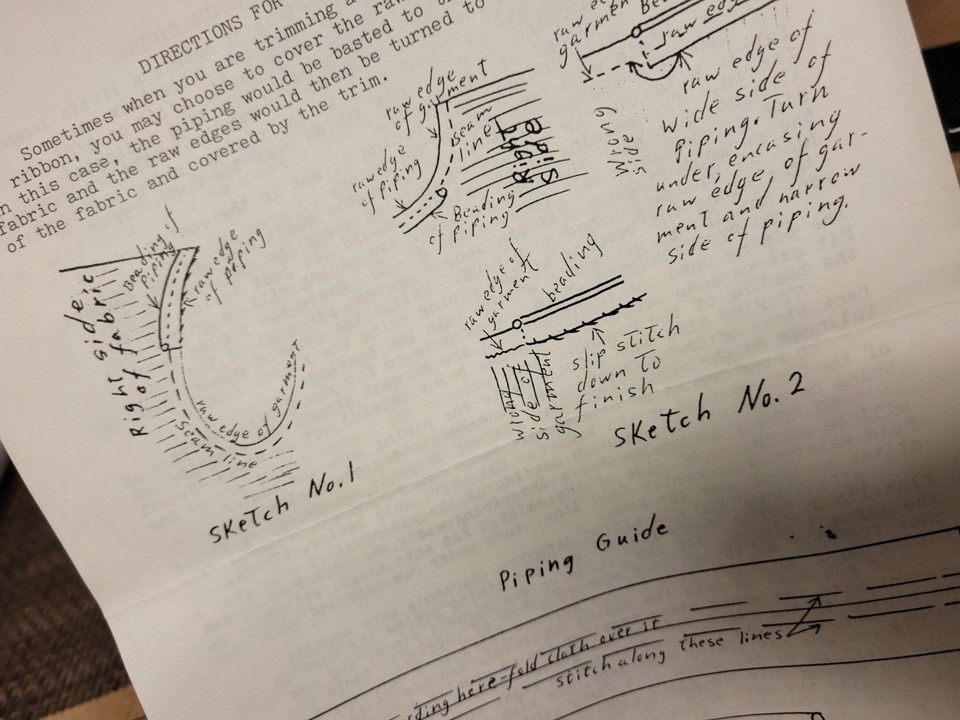 DIRECTIONS FOR
Sometimes when you are trimming a
ribbon, you may choose to cover the raw
n this case, the piping would be basted to t
fabric and the raw edges would then be turned to
of the fabric and covered by the trim.
Right side
of fabric
Beading of
piping
raw edge
of piping
raw edge of garment
seam line
Sketch No.1
raw edge
of garment
raw edge
of piping
seam
line
Right
side
Beading
of piping
raw
garment
raw edge
Wrong
side
raw edge of
wide side of
piping. Turn
under, encasing
raw edge, of gar-
ment and narrow
side of piping.
raw edge of
garment
beading
wrong
side of
garment
slip stitch
down to
finish
Sketch No. 2
Piping Guide
ding here-fold cloth over it
stitch along these lines